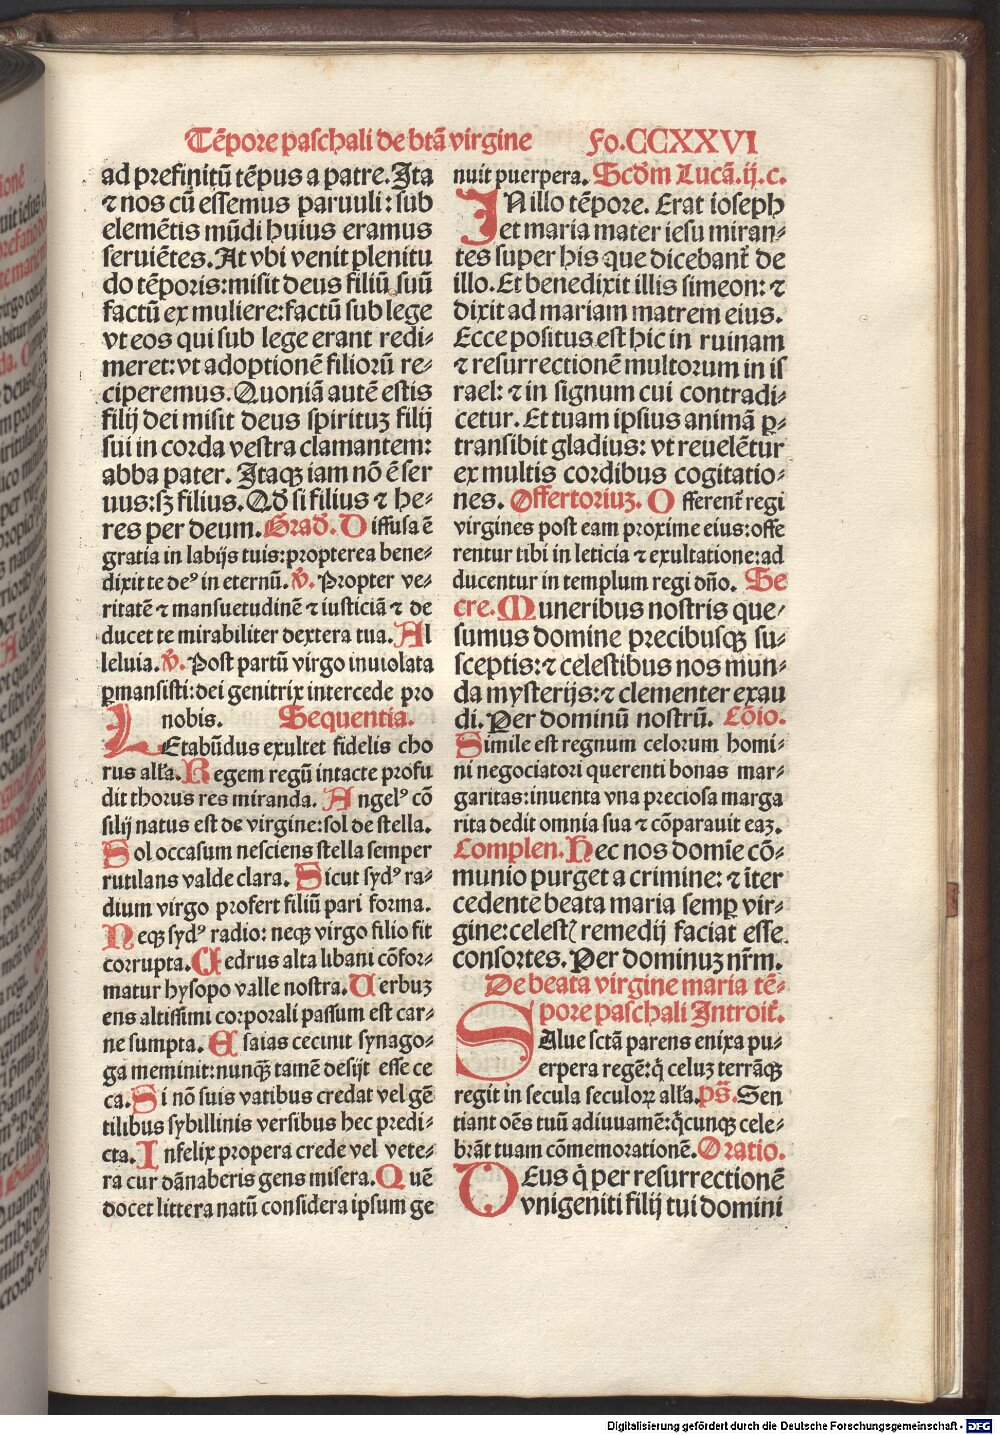 Tēpore paschali de btā virgine Fo.CCXXVI
ad prefinitū tēpus a patre. Ita
⁊ nos cū essemus paruuli: sub
elemētis mūdi huius eramus
seruiētes. At vbi venit plenitu
do tēporis: misit deus filiū suū
factū ex muliere: factū sub lege
vt eos qui sub lege erant redi-
meret: vt adoptionē filiorū re-
ciperemus. Quoniā autē estis
filij dei misit deus spirituꝫ filij
sui in corda vestra clamantem:
abba pater. Itaqꝫ iam nō ē ser
uus: sꝫ filius. Qd̓ si filius ⁊ he-
res per deum. Grad̓. Diffusa ē
gratia in labijs tuis: propterea bene-
dixit te deꝰ in eternū. ꝟ. Propter ve-
ritatē ⁊ mansuetudinē ⁊ iusticiā ⁊ de
ducet te mirabiliter dextera tua. Al
leluia. ꝟ. Post partū virgo inuiolata
ꝑmansisti: dei genitrix intercede pro
nobis. Sequentia.
LEtabūdus exultet fidelis cho
rus allr̄a. Regem regū intacte profu
dit thorus res miranda. Angelꝰ cō
silij natus est de virgine: sol de stella.
Sol occasum nesciens stella semper
rutilans valde clara. Sicut sydꝰ ra-
dium virgo profert filiū pari forma.
Neqꝫ sydꝰ radio: neqꝫ virgo filio fit
corrupta. Cedrus alta libani cōfor-
matur hysopo valle nostra. Verbuꝫ
ens altissimi corporali passum est car-
ne sumpta. Esaias cecinit synago-
ga meminit: nunqꝫ tamē desijt esse ce
ca. Si nō suis vatibus credat vel gē
tilibus sybillinis versibus hec predi-
cta. Infelix propera crede vel vete-
ra cur dānaberis gens misera. Quē
docet littera natū considera ipsum ge
nuit puerpera. Scd̓m Lucā. ij. c.
IN illo tēpore. Erat ioseph
et maria mater iesu miran-
tes super his que dicebant̄ de
illo. Et benedixit illis simeon: ⁊
dixit ad mariam matrem eius.
Ecce positus est hic in ruinam
⁊ resurrectionē multorum in is
rael: ⁊ in signum cui contradi-
cetur. Et tuam ipsius animā ꝑ-
transibit gladius: vt reuelētur
ex multis cordibus cogitatio-
nes. Offertoriuꝫ. Offerent̄ regi
virgines post eam proxime eius: offe
rentur tibi in leticia ⁊ exultatione: ad
ducentur in templum regi dn̄o. Se
cre. Muneribus nostris que-
sumus domine precibusqꝫ su-
sceptis: ⁊ celestibus nos mun-
da mysterijs: ⁊ clementer exau
di. Per dominū nostrū. Cōio.
Simile est regnum celorum homi-
ni negociatori querenti bonas mar-
garitas: inuenta vna preciosa marga
rita dedit omnia sua ⁊ cōparauit eaꝫ.
Complen. Hec nos domīe cō-
munio purget a crimine: ⁊ īter
cedente beata maria semꝑ vir-
gine: celestꝭ remedij faciat esse
consortes. Per dominuꝫ nr̄m.
De beata virgine maria tē-
pore paschali Introit̄.
SAlue sctā parens enixa pu-
erpera regē: q̄ celuꝫ terrāqꝫ
regit in secula seculoꝝ allr̄a. ps̄. Sen
tiant oēs tuū adiuuamē: q̄cunqꝫ cele-
brāt tuam cōmemorationē. Oratio.
DEus q̄ per resurrectionē
vnigeniti filij tui domini
Digitalisierung gefördert durch die Deutsche Forschungsgemeinschaft - DFG